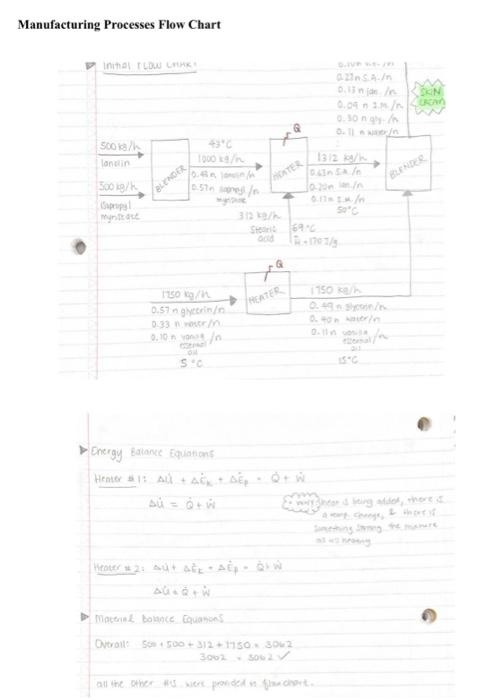 Manufacturing Processes Flow Chart
Initial FLOW CHART
0.23n S.A./n
0.13 n lan. /n
0.09 n I.M./n
0.30 n gly. /n
0.11 n water/n
SKIN CREAM
500 kg/h
lanolin
500 kg/h
Isopropyl
myristate
BLENDER
43°C
1000 kg/h
0.43n lanolin/n
0.57n isopropyl/n
myristate
312 kg/h
Stearic
acid
Q
HEATER
69°C
1312 kg/h
0.63n S.A. /n
0.20n lan./n
0.17n I.M. /n
50°C
BLENDER
1750 kg/h
0.57 n glycerin/n
0.33 n water/n
0.10 n vanilla /n
essential
oil
5°C
Q
HEATER
1750 kg/h
0.49n glycerin/n
0.40n water/n
0.11n vanilla
essential/n
oil
15°C
Energy Balance Equations
Heater #1: ΔU̇ + ΔĖk + ΔĖp = Q̇ + Ẇ
ΔU̇ = Q̇ + Ẇ
heat is being added, there is
a temp. change, & there is
something stirring the mixture
as it's heating
Heater #2: ΔU̇ + ΔĖk + ΔĖp = Q̇ + Ẇ
ΔU̇ = Q̇ + Ẇ
Material Balance Equations
Overall: 500 + 500 + 312 + 1750 = 3062
3062 = 3062 ✓
all the other #'s were provided in flow chart.